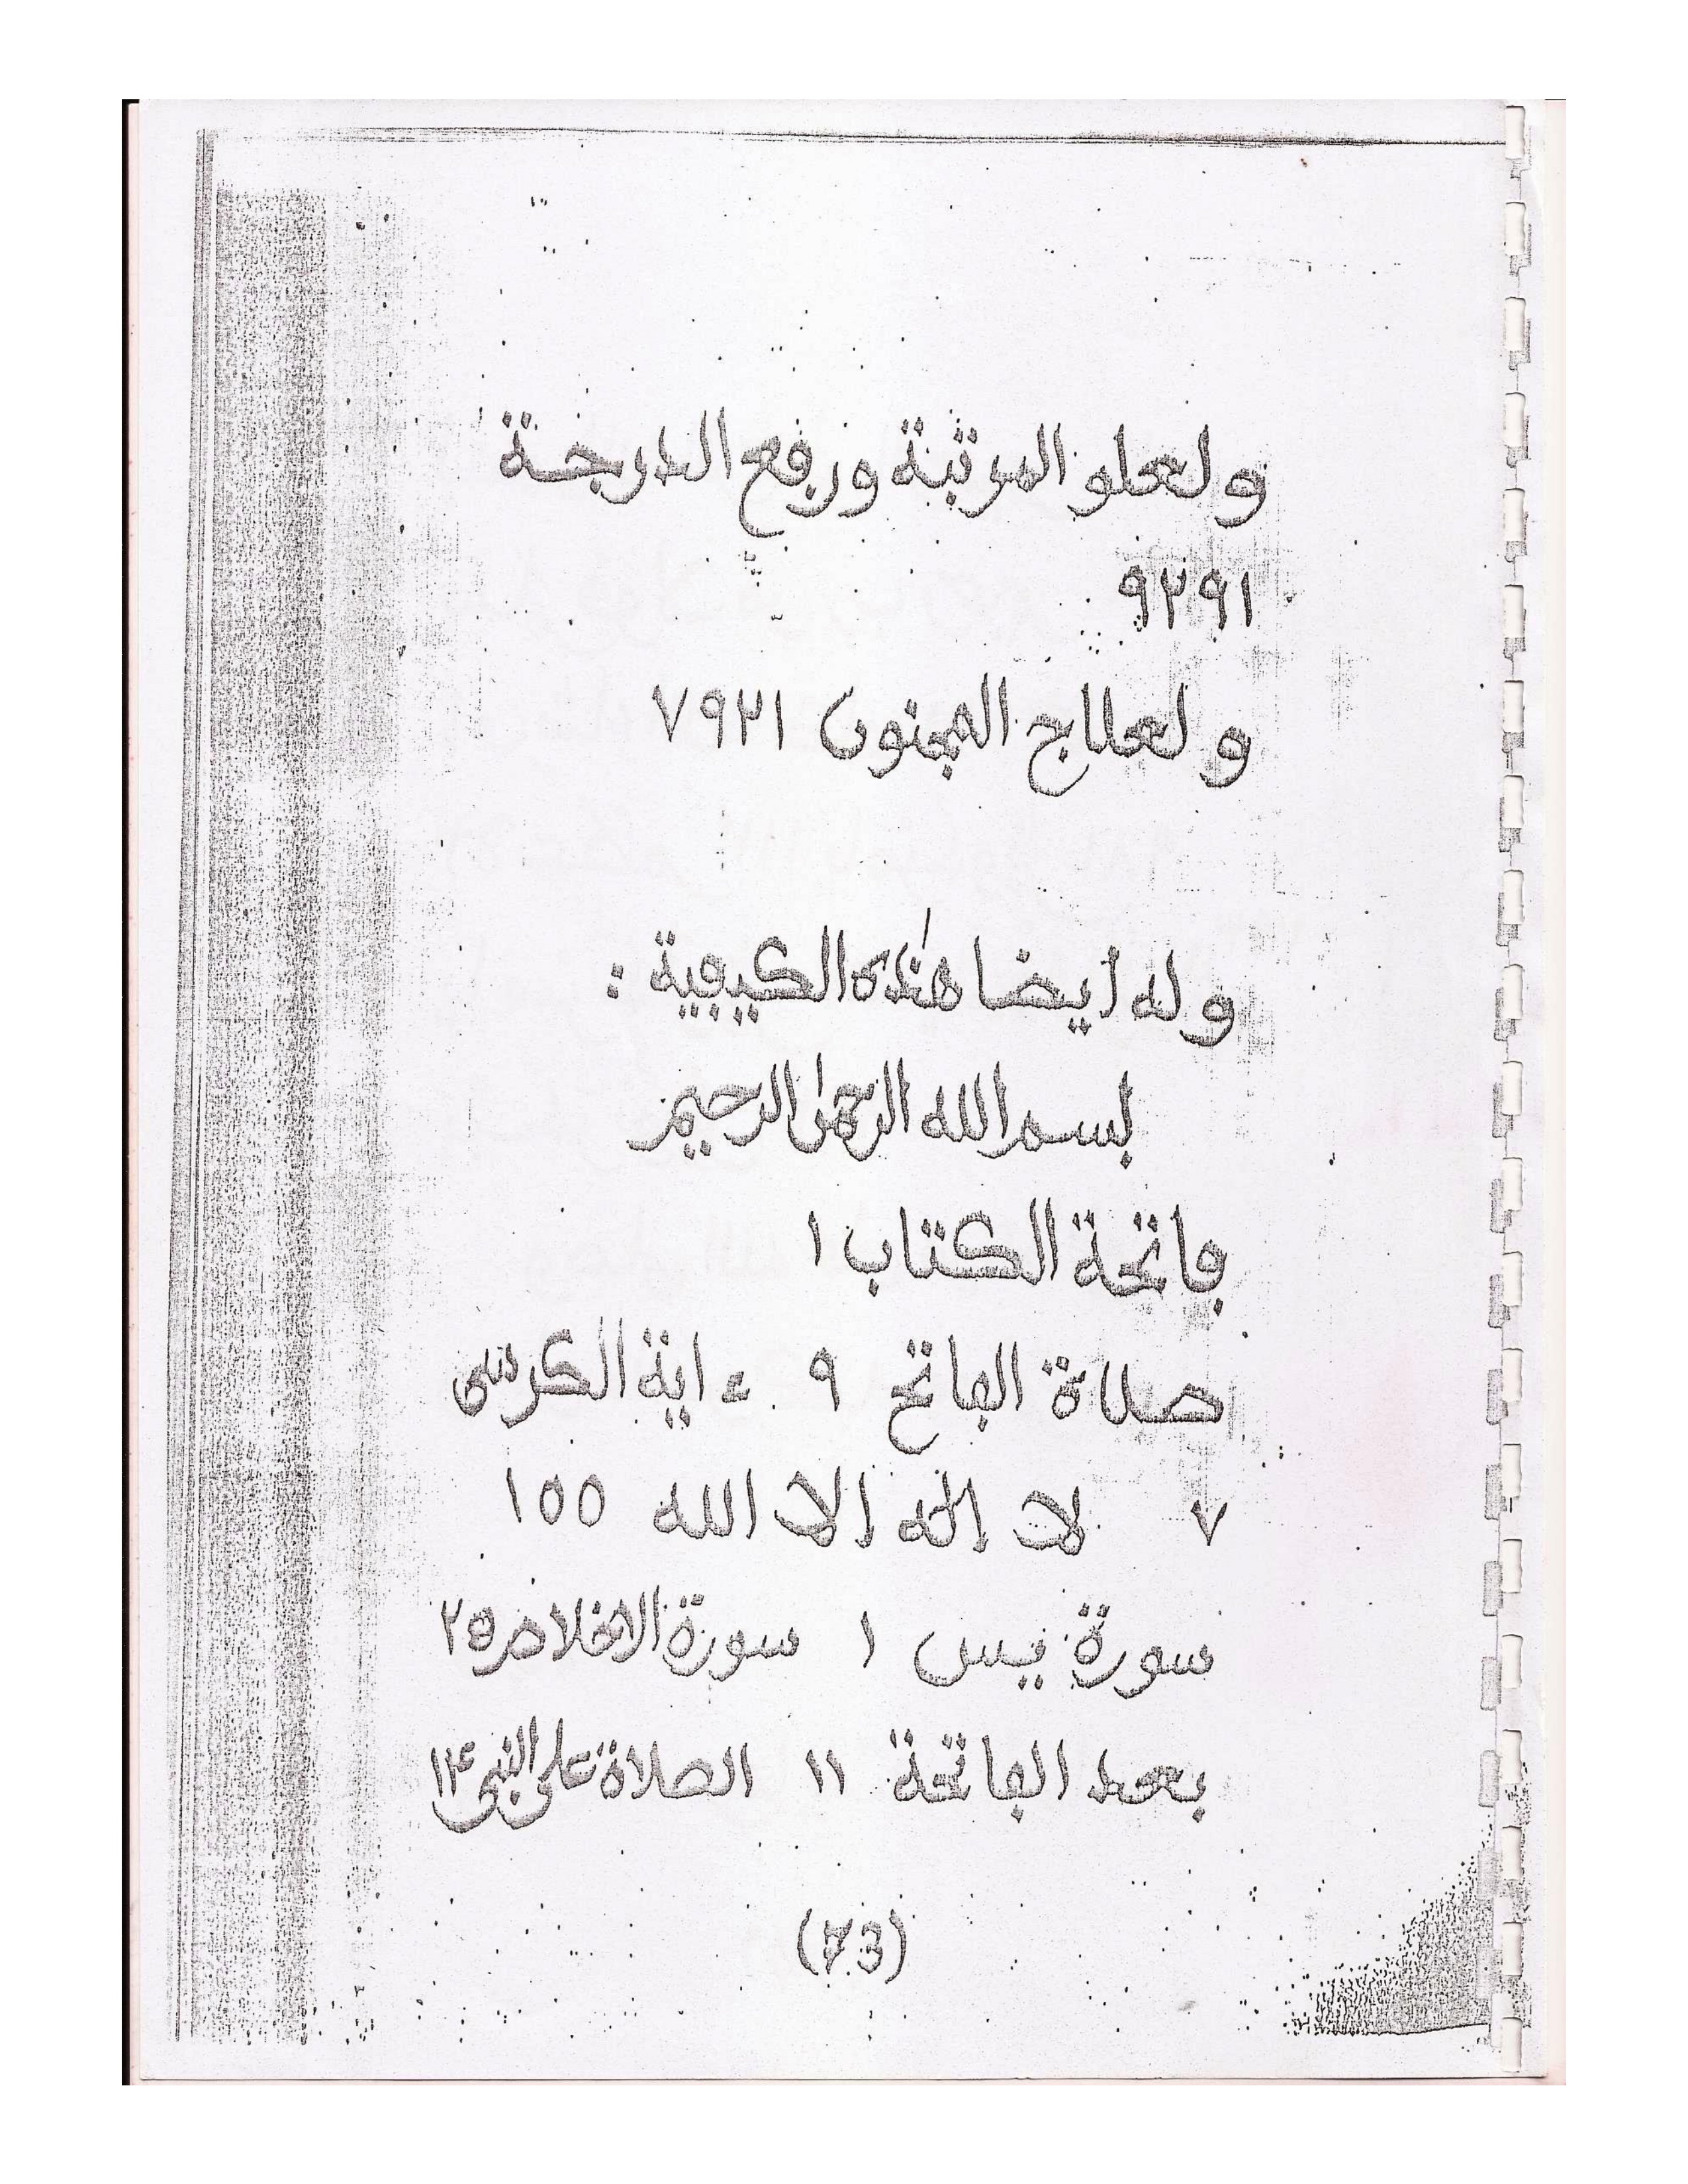 ولعلو المرتبة ورفع الدرجة
٩٢٩١
ولعلاج المجنون ٧٩٢١
وله أيضا هذه الكيفية :
بسم الله الرحمن الرحيم
فاتحة الكتاب ١
صلاة الفاتح ٩ ءاية الكرسى
٧ لا إله إلا الله ١٥٥
سورة يس ١ سورة الاخلاص ٢٥
بعد الفاتحة ١١ الصلاة على النبي